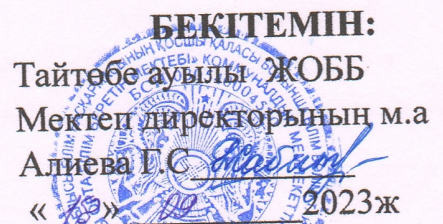 БЕКІТЕМІН:
Тайтөбе ауылы ЖОББ
Мектеп директорының м.а
Алиева Г.С
« » 09 2023ж